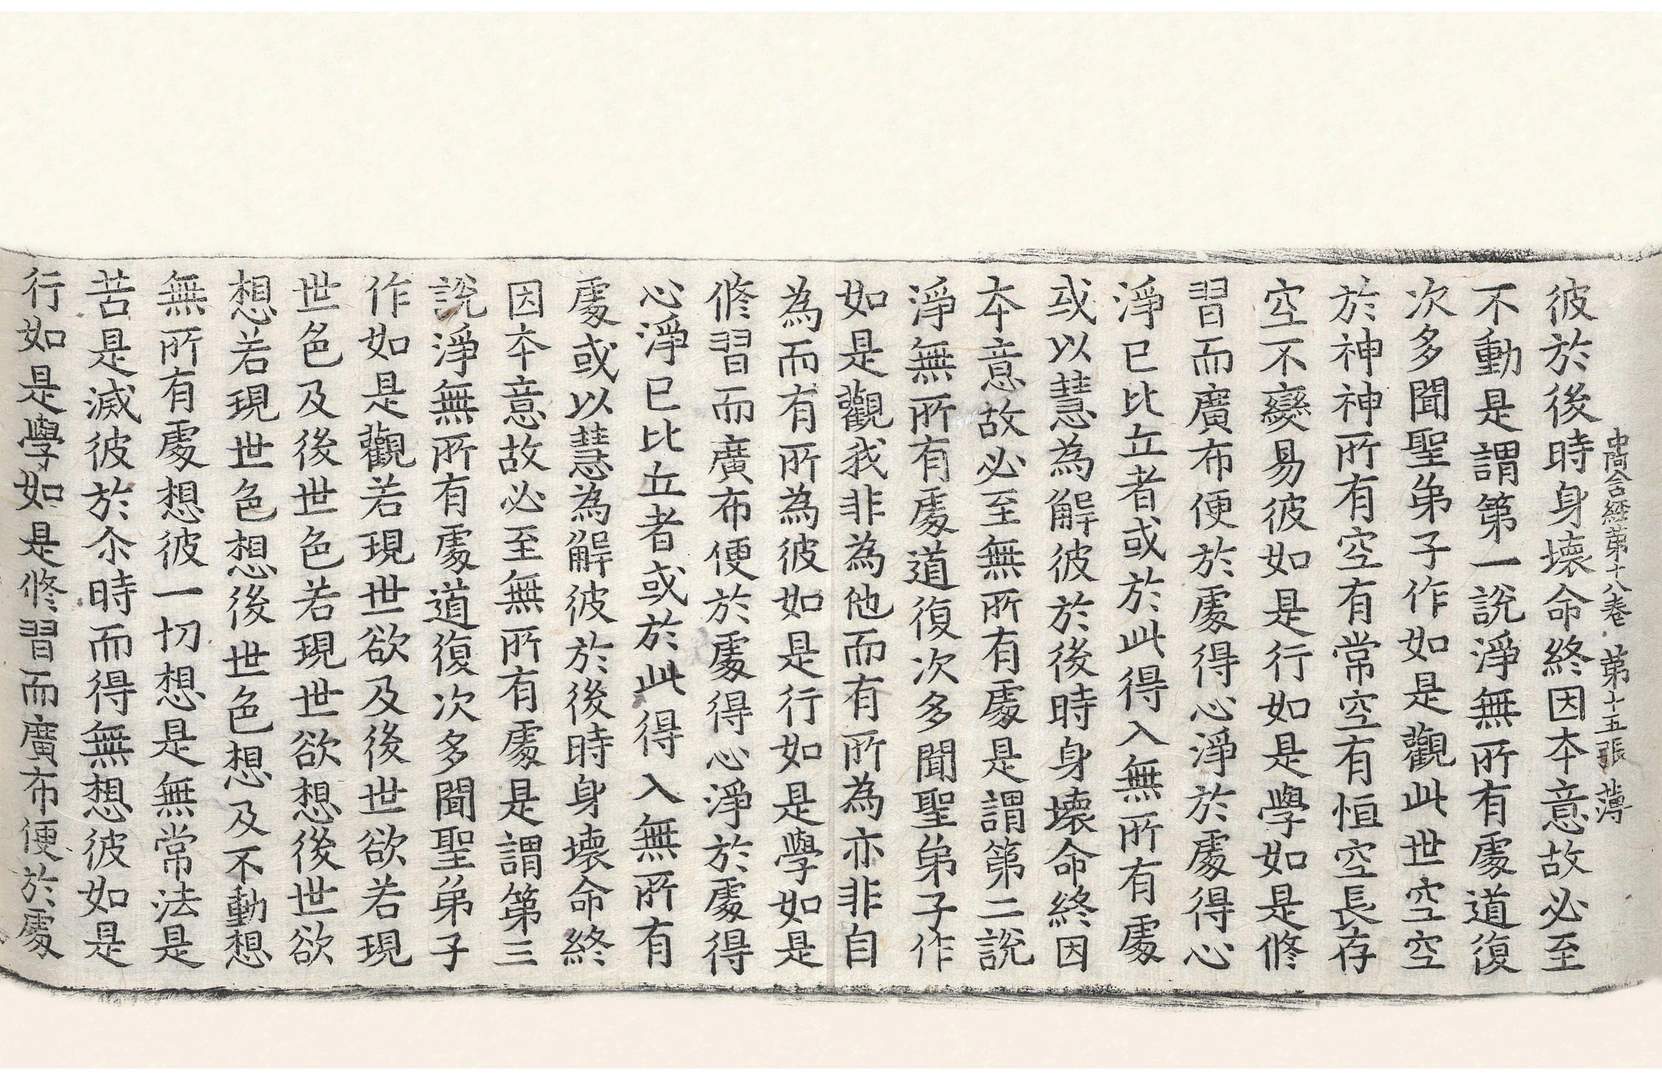 中阿含經第十八卷 第十五張 薄
彼於後時身壞命終因本意故必至
不動是謂第一說淨無所有處道復
次多聞聖弟子作如是觀此世空空
於神神所有空有常空有恒空長存
空不變易彼如是行如是學如是修
習而廣布便於處得心淨於處得心
淨已比丘者或於此得入無所有處
或以慧為解彼於後時身壞命終因
本意故必至無所有處是謂第二說
淨無所有處道復次多聞聖弟子作
如是觀我非為他而有所為亦非自
為而有所為彼如是行如是學如是
修習而廣布便於處得心淨於處得
心淨已比丘者或於此得入無所有
處或以慧為解彼於後時身壞命終
因本意故必至無所有處是謂第三
說淨無所有處道復次多聞聖弟子
作如是觀若現世欲及後世欲若現
世色及後世色若現世欲想後世欲
想若現世色想後世色想及不動想
無所有處想彼一切想是無常法是
苦是滅彼於尒時而得無想彼如是
行如是學如是修習而廣布便於處